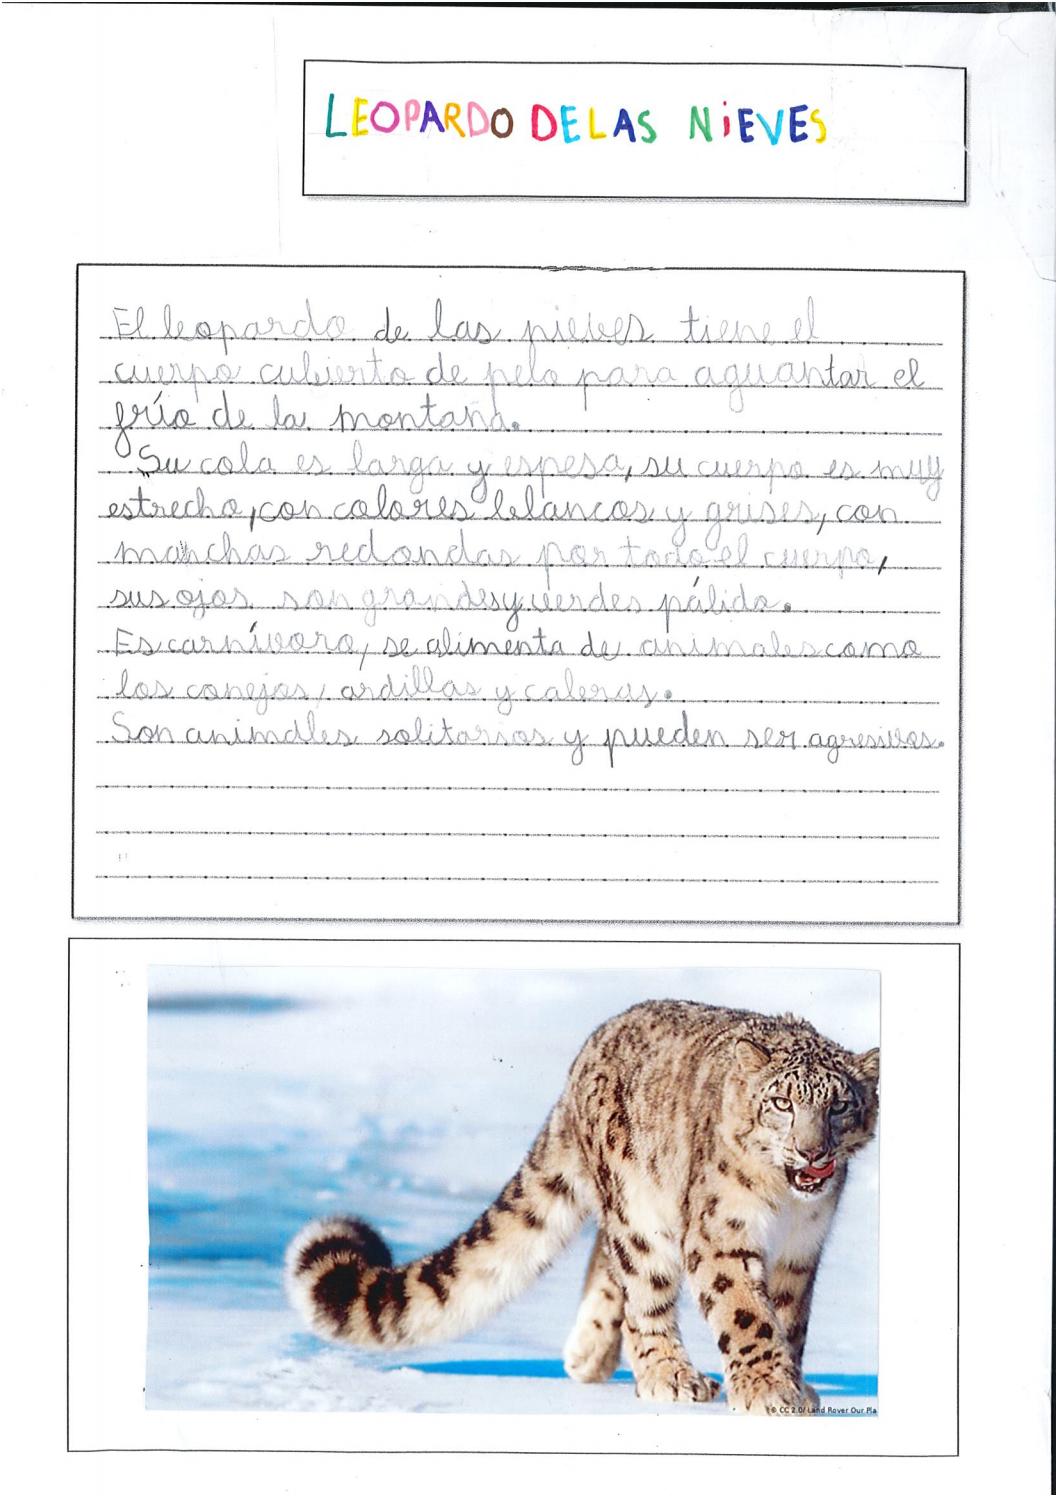 LEOPARDO DE LAS NiEVES
El leopardo de las nieves tiene el
cuerpo cubierto de pelo para aguantar el
frío de la montaña.
Su cola es larga y espesa, su cuerpo es muy
estrecho, con colores blancos y grises, con
manchas redondas por todo el cuerpo,
sus ojos son grandes y verdes pálido.
Es carnívoro, se alimenta de animales como
los conejos, ardillas y cabras.
Son animales solitarios y pueden ser agresivos.
© CC 2.0/ Land Rover Our Pla